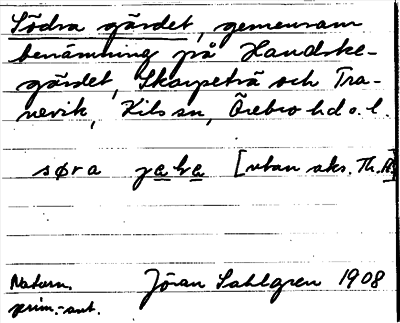 Södra gärdet, gemensam
benämning på Handske-
gärdet, Skarpeträ och Tra-
nevik, Kils sn, Örebro hd o. l.
søra jaha [utan aks. Th. A]
Naturn. Jöran Sahlgren 1908
prim.-ant.